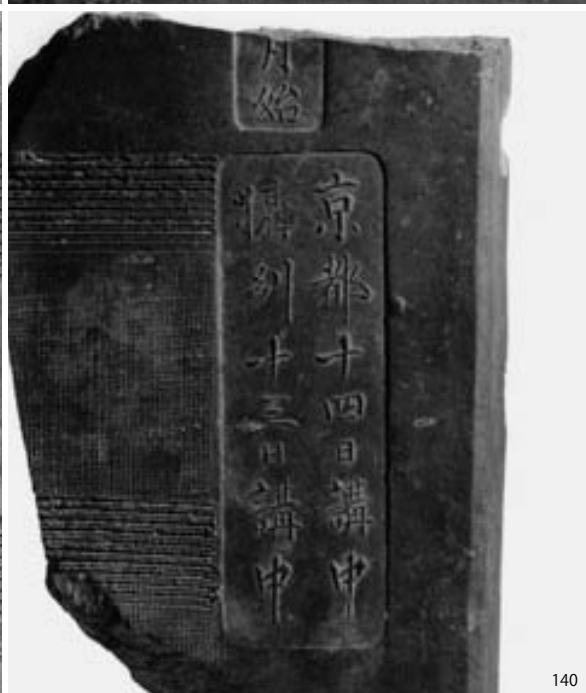 月始
京都十四日講中
播州十三日講中
140